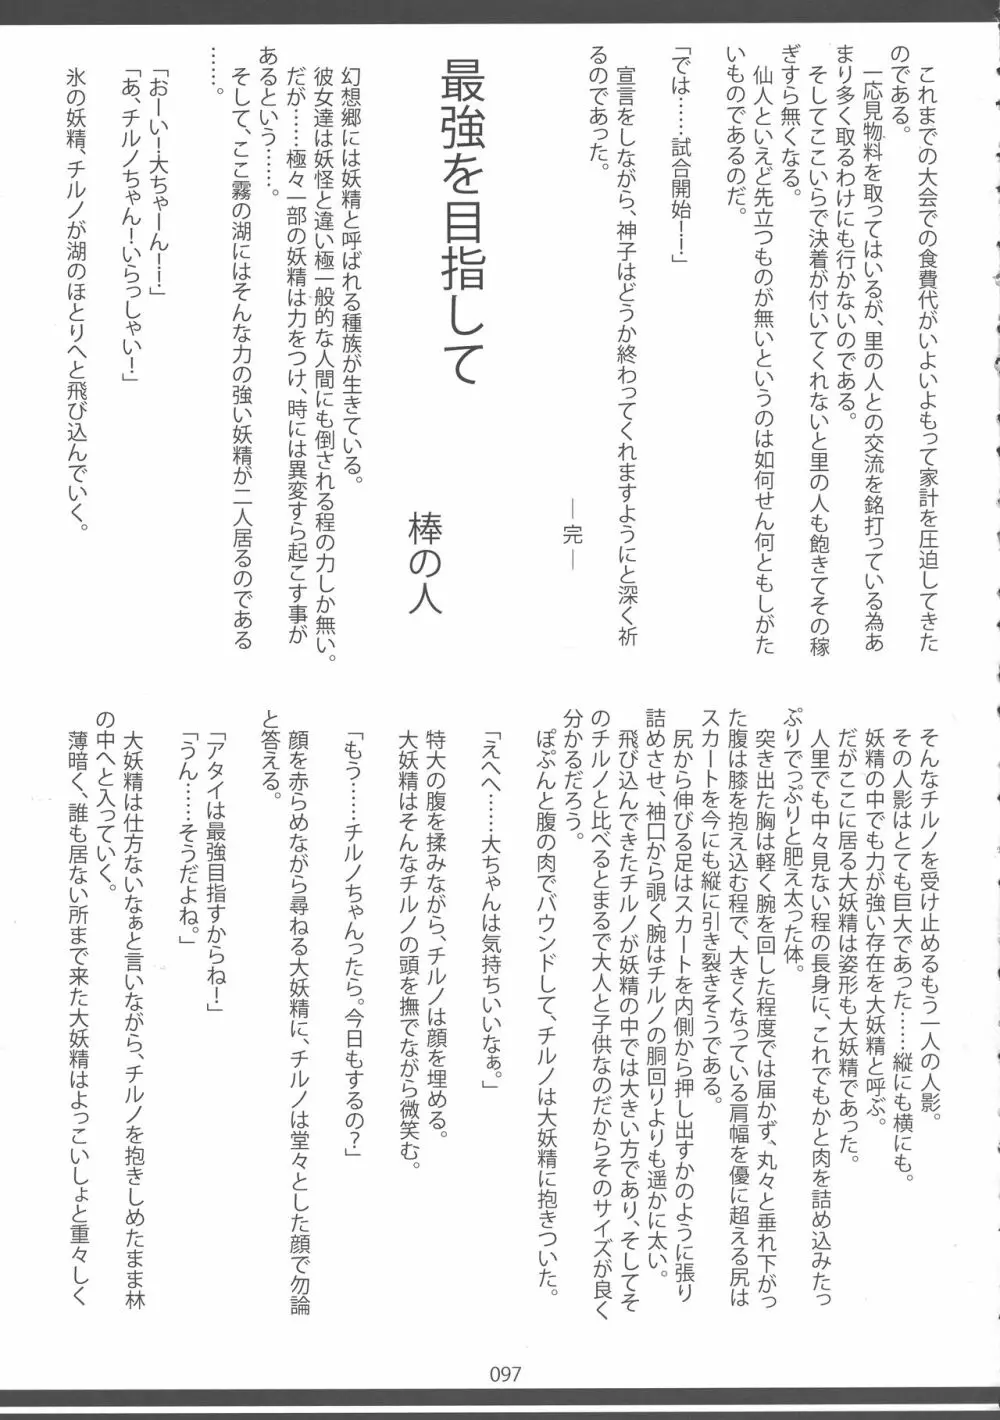 これまでの大会での食費代がいよいよもって家計を圧迫してきた
のである。
一応見物料を取ってはいるが、里の人との交流を銘打っている為あ
まり多く取るわけにも行かないのである。
そしてここいらで決着が付いてくれないと里の人も飽きてその稼
ぎすら無くなる。
仙人といえど先立つものが無いというのは如何せん何ともしがた
いものであるのだ。
「では……試合開始！！」
宣言をしながら、神子はどうか終わってくれますようにと深く祈
るのであった。
―完―
最強を目指して
棒の人
幻想郷には妖精と呼ばれる種族が生きている。
彼女達は妖怪と違い極一般的な人間にも倒される程の力しか無い。
だが……極々一部の妖精は力をつけ、時には異変すら起こす事が
あるという……。
そして、ここ霧の湖にはそんな力の強い妖精が二人居るのである
……。
「おーい！大ちゃーん！！」
「あ、チルノちゃん！いらっしゃい！」
氷の妖精、チルノが湖のほとりへと飛び込んでいく。
そんなチルノを受け止めるもう一人の人影。
その人影はとても巨大であった……縦にも横にも。
妖精の中でも力が強い存在を大妖精と呼ぶ。
だがここに居る大妖精は姿形も大妖精であった。
人里でも中々見ない程の長身に、これでもかと肉を詰め込みたっ
ぷりでっぷりと肥え太った体。
突き出た胸は軽く腕を回した程度では届かず、丸々と垂れ下がっ
た腹は膝を抱え込む程で、大きくなっている肩幅を優に超える尻は
スカートを今にも縦に引き裂きそうである。
尻から伸びる足はスカートを内側から押し出すかのように張り
詰めさせ、袖口から覗く腕はチルノの胴回りよりも遥かに太い。
飛び込んできたチルノが妖精の中では大きい方であり、そしてそ
のチルノと比べるとまるで大人と子供なのだからそのサイズが良く
分かるだろう。
ぽぷんと腹の肉でバウンドして、チルノは大妖精に抱きついた。
「えへへ……大ちゃんは気持ちいいなぁ。」
特大の腹を揉みながら、チルノは顔を埋める。
大妖精はそんなチルノの頭を撫でながら微笑む。
「もう……チルノちゃんったら。今日もするの？」
顔を赤らめながら尋ねる大妖精に、チルノは堂々とした顔で勿論
と答える。
「アタイは最強目指すからね！」
「うん……そうだよね。」
大妖精は仕方ないなぁと言いながら、チルノを抱きしめたまま林
の中へと入っていく。
薄暗く、誰も居ない所まで来た大妖精はよっこいしょと重々しく
097